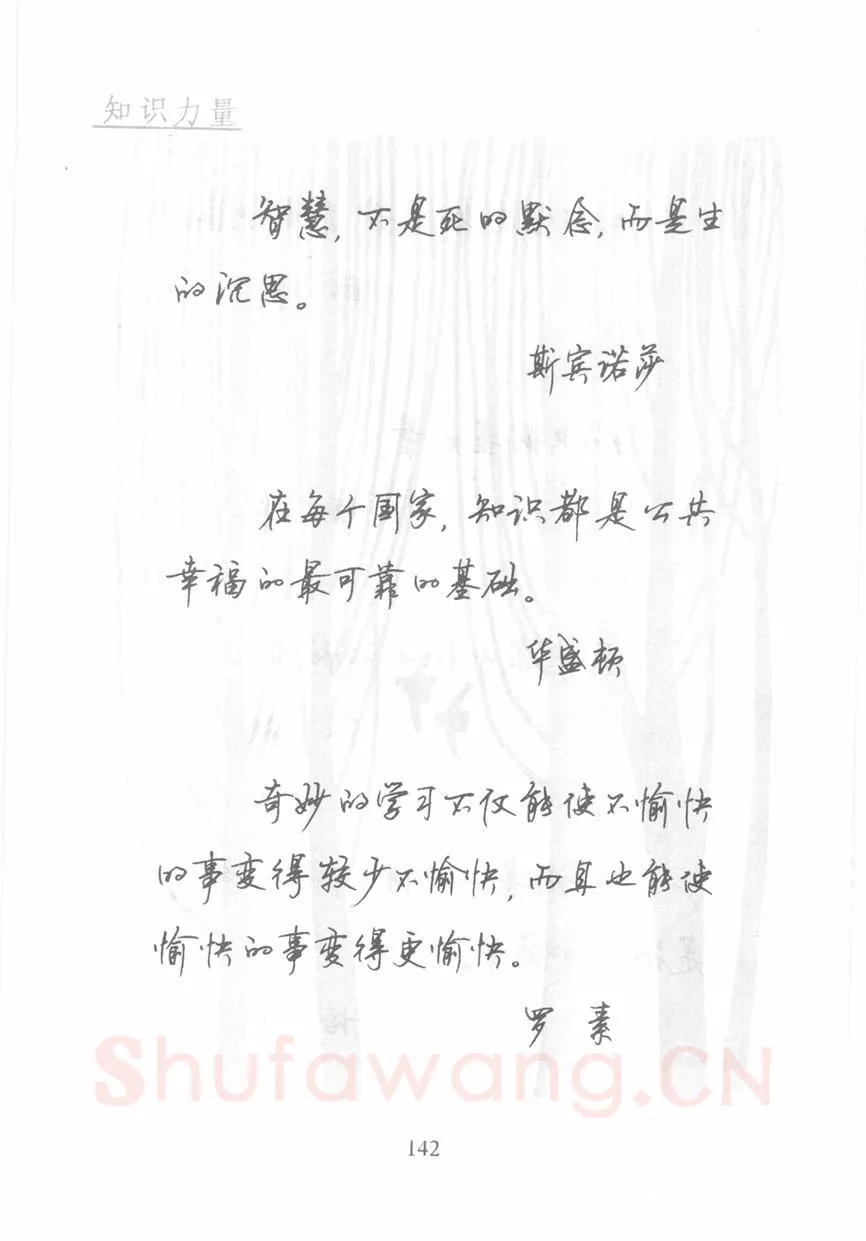 知识力量
智慧,不是死的默念,而是生
的沉思。
斯宾诺莎
在每个国家,知识都是公共
幸福的最可靠的基础。
华盛顿
奇妙的学习不仅能使不愉快
的事变得较少不愉快,而且也能使
愉快的事变得更愉快。
罗素
Shufawang.CN
142